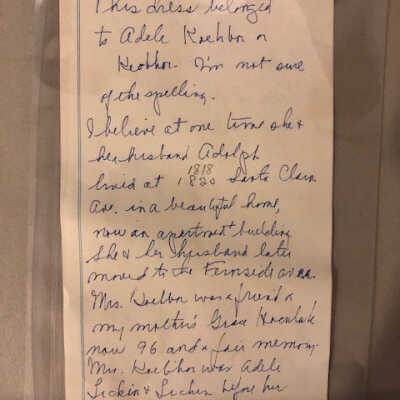 This dress belonged
to Adele Koehbor or
Keobhor. I'm not sure
of the spelling.
I believe at one time she &
her husband Adolph
1818
lived at 1820 Santa Clara
Ave. in a beautiful home,
now an apartment building
She & her husband later
moved to the Fernside area.
Mrs. was a friend of
my mother's Grace
now 96 and a fair memory.
Mrs. was Adele
before her